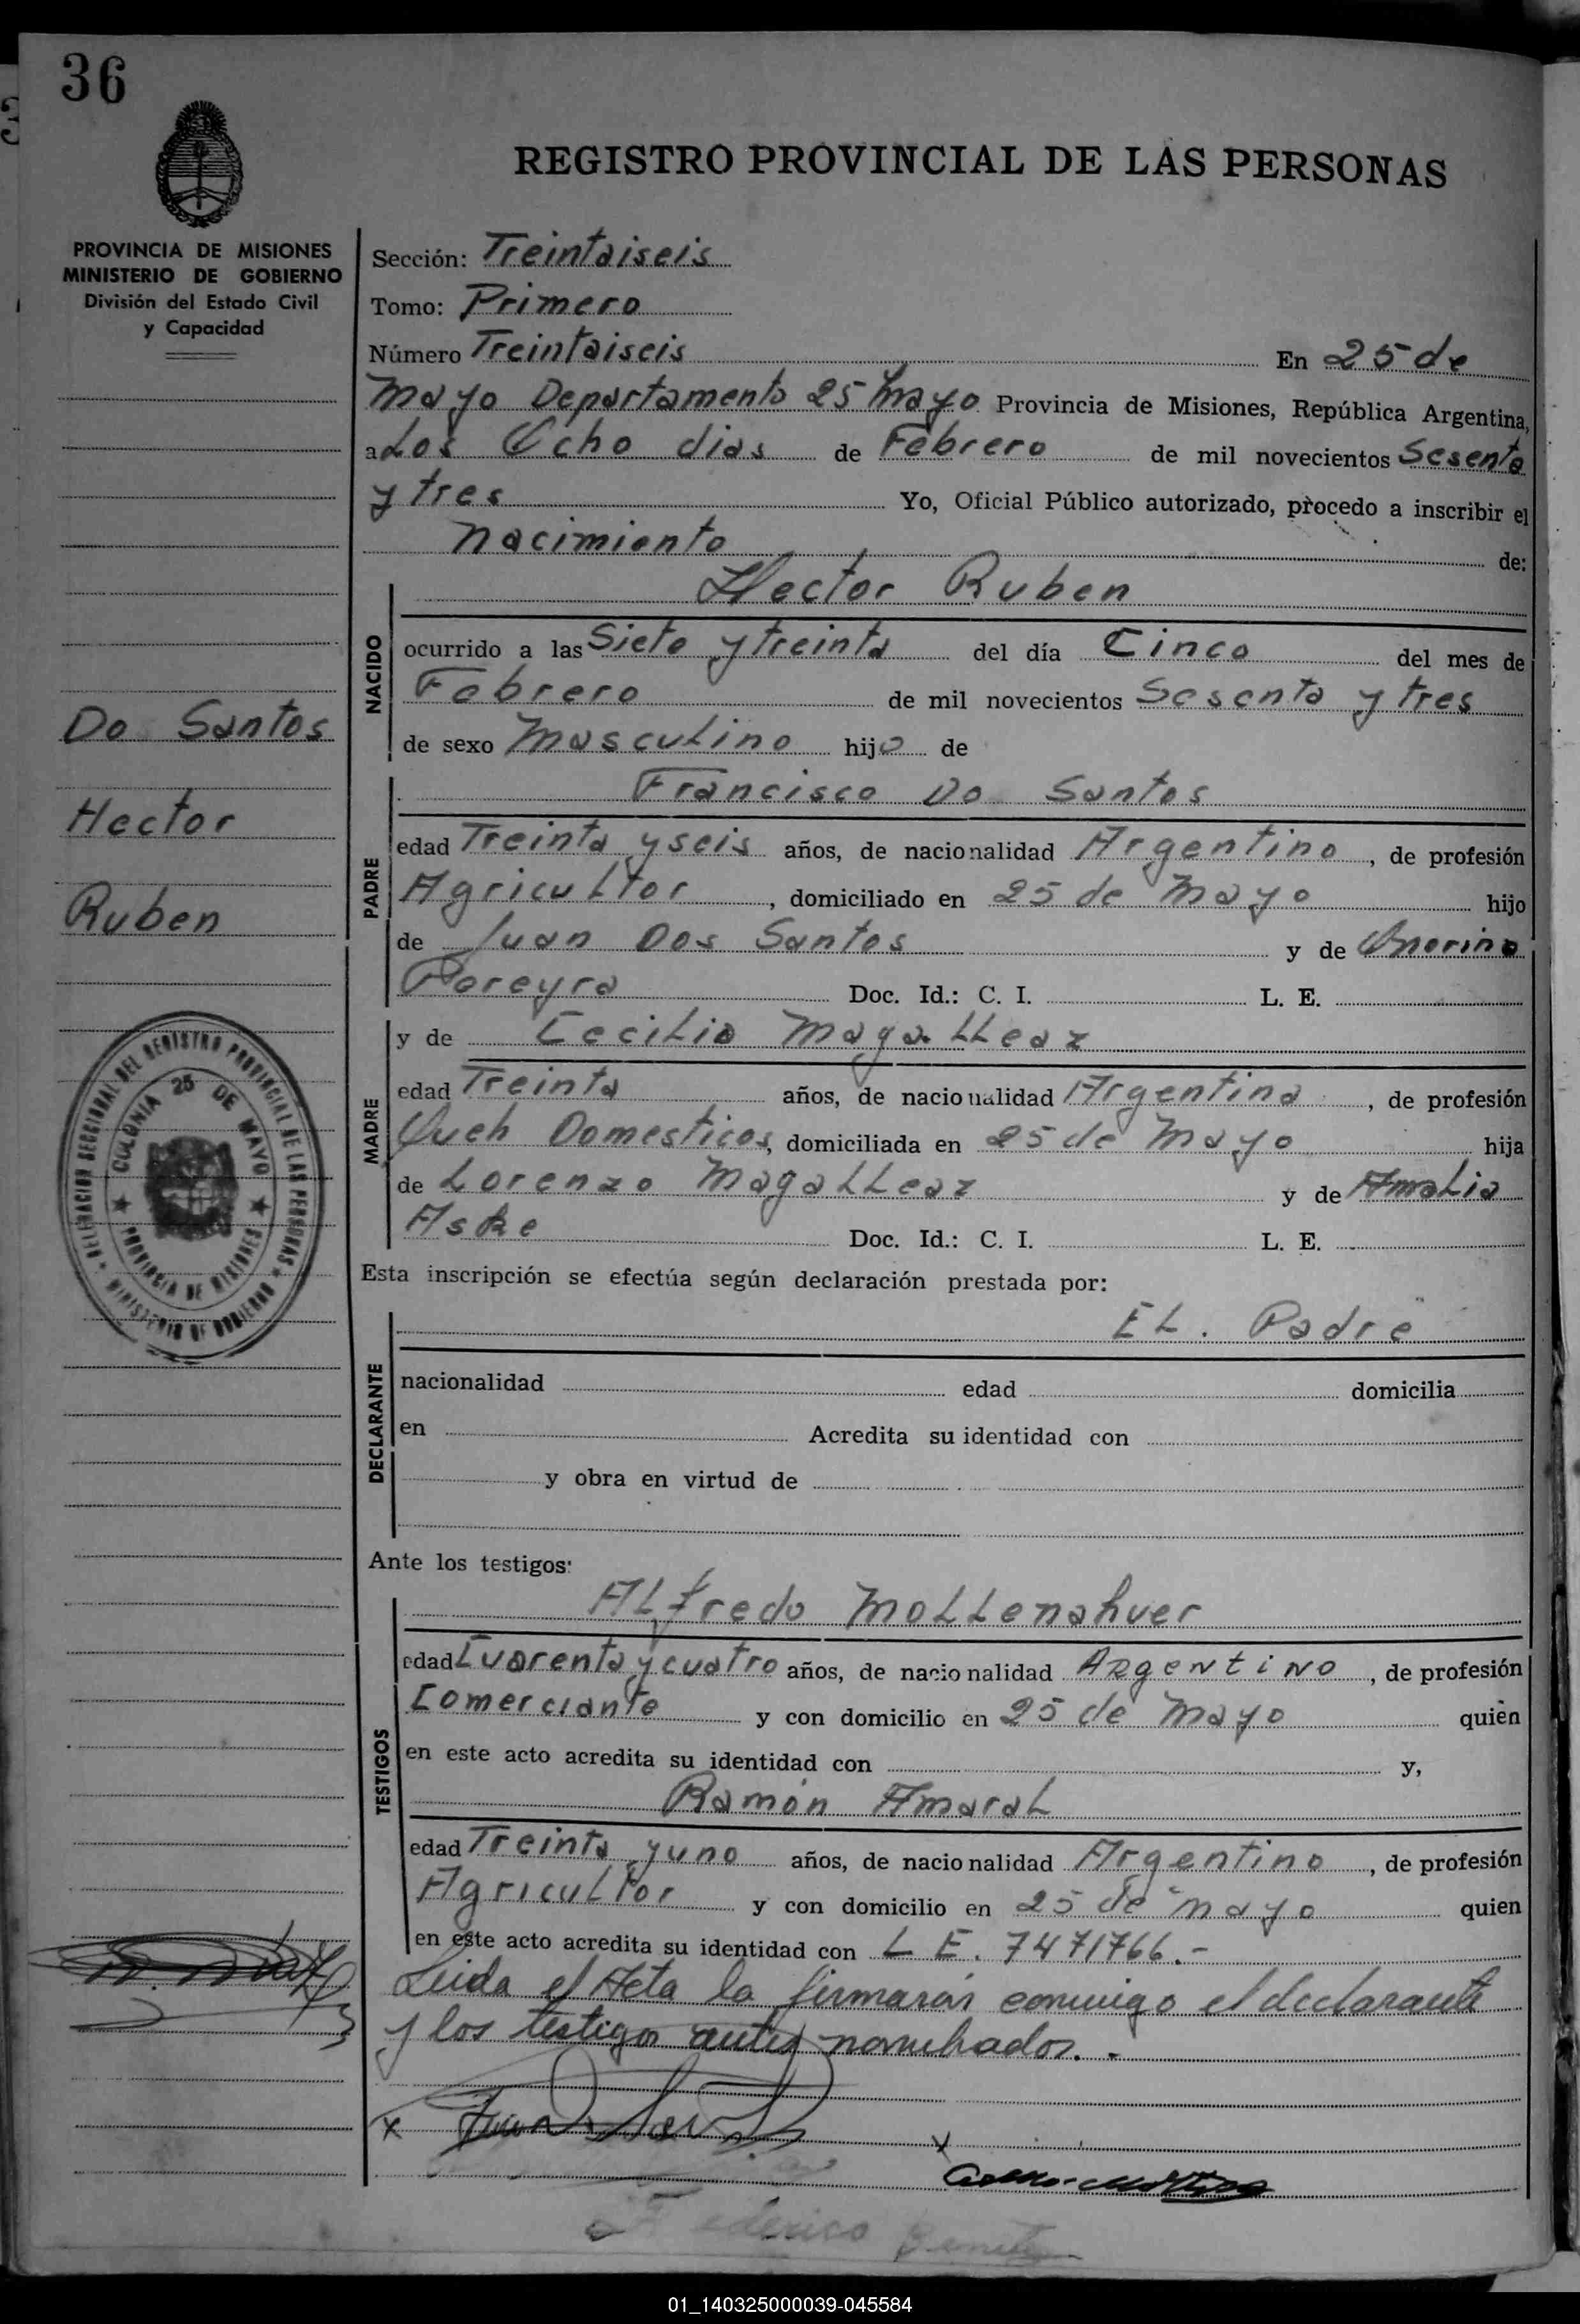 36
REGISTRO PROVINCIAL DE LAS PERSONAS
PROVINCIA DE MISIONES
MINISTERIO DE GOBIERNO
División del Estado Civil
y Capacidad
Do Santos
Hector
Ruben
DELEGACION SECCIONAL DEL REGISTRO PROVINCIAL DE LAS PERSONAS
MINISTERIO DE GOBIERNO
COLONIA 25 DE MAYO
PROVINCIA DE MISIONES
Sección: Treintaiseis
Tomo: Primero
Número Treintaiseis En 25 de
Mayo Departamento 25 Mayo Provincia de Misiones, República Argentina,
a Los Ocho dias de Febrero de mil novecientos Sesenta
y tres Yo, Oficial Público autorizado, procedo a inscribir el
nacimiento de:
Hector Ruben
NACIDO
ocurrido a las Siete y treinta del día Cinco del mes de
Febrero de mil novecientos Sesenta y tres
de sexo Masculino hijo de
Francisco Do Santos
PADRE
edad Treinta y seis años, de nacionalidad Argentino, de profesión
Agricultor, domiciliado en 25 de Mayo hijo
de Juan Dos Santos y de
Pereyra Doc. Id.: C. I. L. E.
MADRE
y de Cecilia MagaLLeaz
edad Treinta años, de nacionalidad Argentina, de profesión
Queh Domesticos, domiciliada en 25 de Mayo hija
de Lorenzo MagaLLeaz y de Amalia
Doc. Id.: C. I. L. E.
Esta inscripción se efectúa según declaración prestada por:
EL. Padre
DECLARANTE
nacionalidad edad domicilia
en Acredita su identidad con
y obra en virtud de
Ante los testigos:
ALfredo MoLLenahuer
TESTIGOS
edad Cuarenta y cuatro años, de nacionalidad Argentino, de profesión
Comerciante y con domicilio en 25 de Mayo quien
en este acto acredita su identidad con y,
Ramón Amaral
edad Treinta y uno años, de nacionalidad Argentino, de profesión
Agricultor y con domicilio en 25 de Mayo quien
en este acto acredita su identidad con L E. 7471766.-
Leida el Acta la firmarán conmigo el declarante
y los testigos antes nombrados. -
x
Federico
01_140325000039-045584